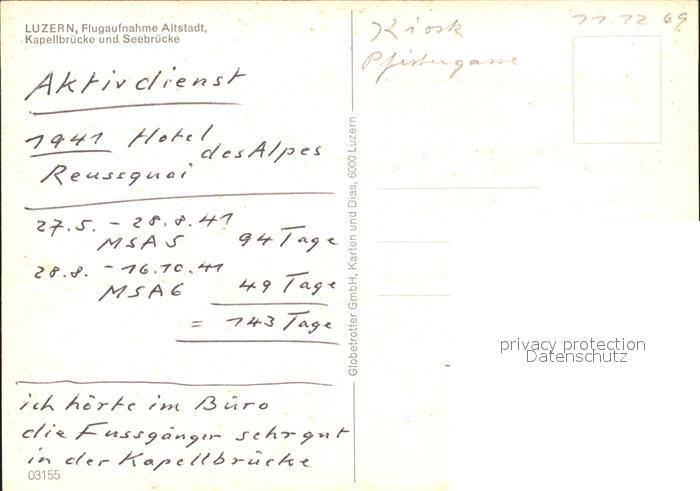 LUZERN, Flugaufnahme Altstadt,
Kapellbrücke und Seebrücke
Aktivdienst
1941 Hotel
des Alpes
Reussquai
27.5. - 28.8.41
MSA5 94 Tage
28.8. - 16.10.41
MSA6 49 Tage
= 143 Tage
ich hörte im Büro
die Fussgänger sehr gut
in der Kapellbrücke
03155
Globetrotter GmbH, Karten und Dias, 6000 Luzern
Kiosk
Pfistergasse
11.12.69
privacy protection
Datenschutz